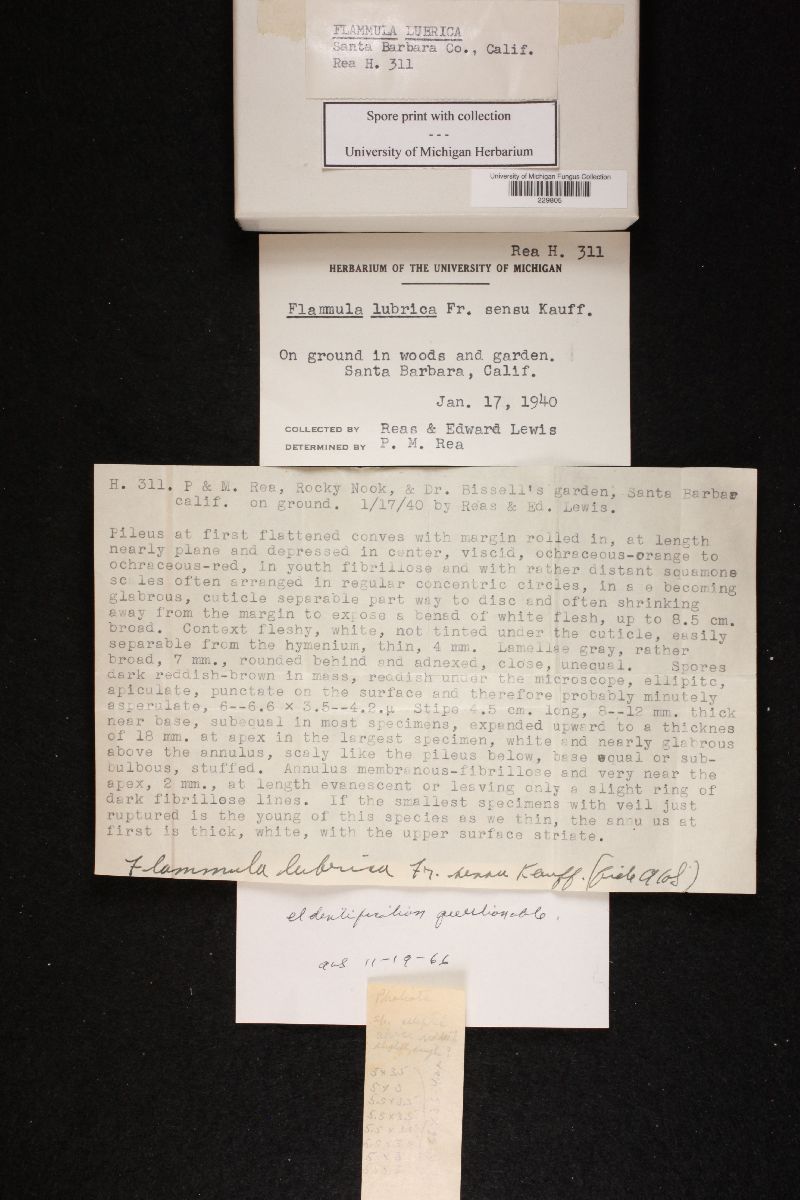 FLAMMULA LUBRICA
Santa Barbara Co., Calif.
Rea H. 311
Spore print with collection
- - -
University of Michigan Herbarium
University of Michigan Fungus Collection
229805
Rea H. 311
HERBARIUM OF THE UNIVERSITY OF MICHIGAN
Flammula lubrica Fr. sensu Kauff.
On ground in woods and garden.
Santa Barbara, Calif.
Jan. 17, 1940
COLLECTED BY Reas & Edward Lewis
DETERMINED BY P. M. Rea
H. 311. P & M. Rea, Rocky Nook, & Dr. Bissell's garden, Santa Barbar
calif. on ground. 1/17/40 by Reas & Ed. Lewis.
Pileus at first flattened conves with margin rolled in, at length
nearly plane and depressed in center, viscid, ochraceous-orange to
ochraceous-red, in youth fibrillose and with rather distant squamone
sc les often arranged in regular concentric circles, in a e becoming
glabrous, cuticle separable part way to disc and often shrinking
away from the margin to expose a benad of white flesh, up to 8.5 cm.
broad. Context fleshy, white, not tinted under the cuticle, easily
separable from the hymenium, thin, 4 mm. Lamellae gray, rather
broad, 7 mm., rounded behind and adnexed, close, unequal. Spores
dark reddish-brown in mass, readish under the microscope, ellipitc,
apiculate, punctate on the surface and therefore probably minutely
asperulate, 6--6.6 × 3.5--4.2.µ Stipe 4.5 cm. long, 8--12 mm. thick
near base, subequal in most specimens, expanded upward to a thicknes
of 18 mm. at apex in the largest specimen, white and nearly glabrous
above the annulus, scaly like the pileus below, base equal or sub-
bulbous, stuffed. Annulus membranous-fibrillose and very near the
apex, 2 mm., at length evanescent or leaving only a slight ring of
dark fibrillose lines. If the smallest specimens with veil just
ruptured is the young of this species as we thin, the annu us at
first is thick, white, with the upper surface striate.
Flammula lubrica Fr. sensu Kauff. (fide AHS)
Identification questionable.
AHS 11-19-66
Pholiota
5 x 3.5
5 x 3
5.5 x 3.5
5.5 x 3.5
5.5 x